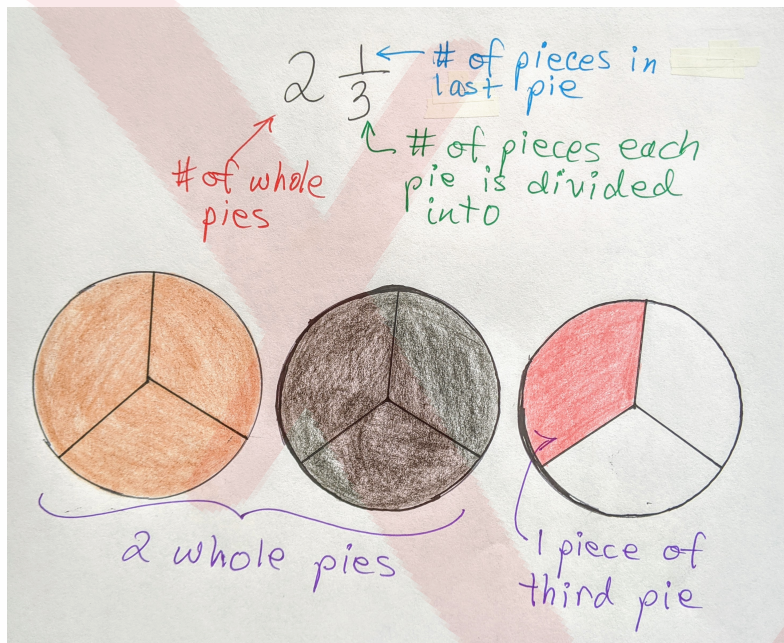 2 1/3
# of pieces in
last pie
# of whole
pies
# of pieces each
pie is divided
into
2 whole pies
1 piece of
third pie